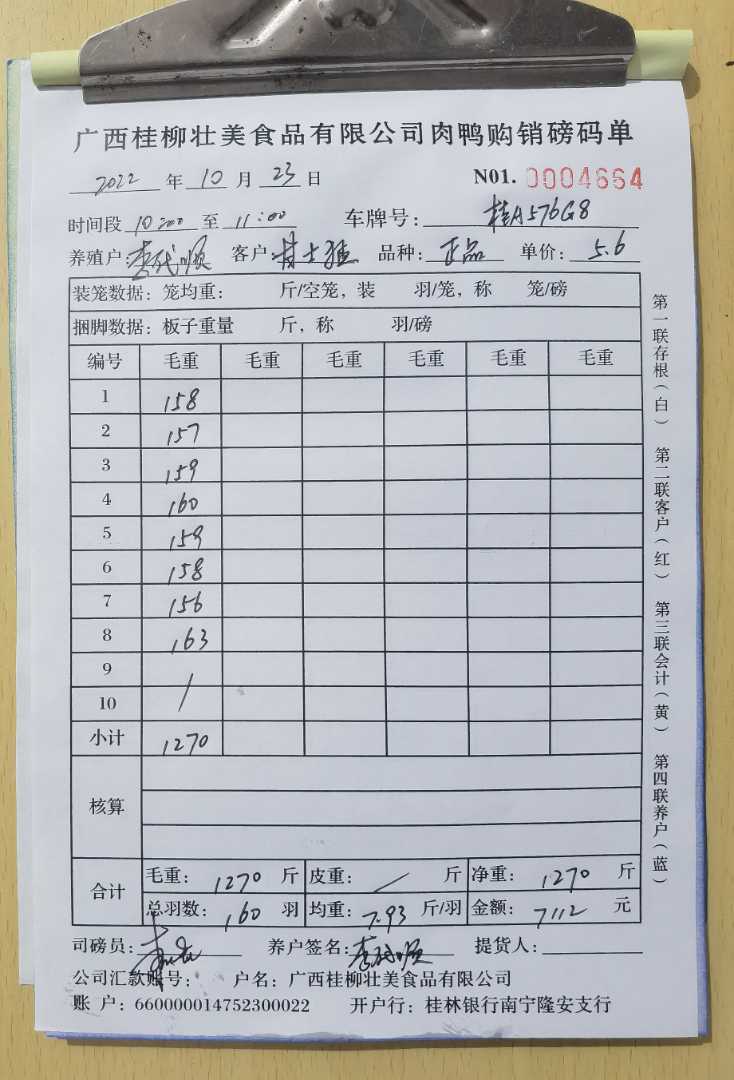 广西桂柳壮美食品有限公司肉鸭购销磅码单
2022 年 10 月 23 日 N01. 0004664
时间段 10:00 至 11:00 车牌号: 桂A576G8
养殖户: 客户: 品种: 正品 单价: 5.6
装笼数据: 笼均重: 斤/空笼, 装 羽/笼, 称 笼/磅
捆脚数据: 板子重量 斤, 称 羽/磅
编号 毛重 毛重 毛重 毛重 毛重 毛重
1 158
2 157
3 159
4 160
5 159
6 158
7 156
8 163
9 /
10
小计 1270
核算
合计
毛重: 1270 斤 皮重: / 斤 净重: 1270 斤
总羽数: 160 羽 均重: 7.93 斤/羽 金额: 7112 元
司磅员: 养户签名: 提货人:
公司汇款账号: 户名: 广西桂柳壮美食品有限公司
账 户: 660000014752300022 开户行: 桂林银行南宁隆安支行
第一联存根(白) 第二联客户(红) 第三联会计(黄) 第四联养户(蓝)